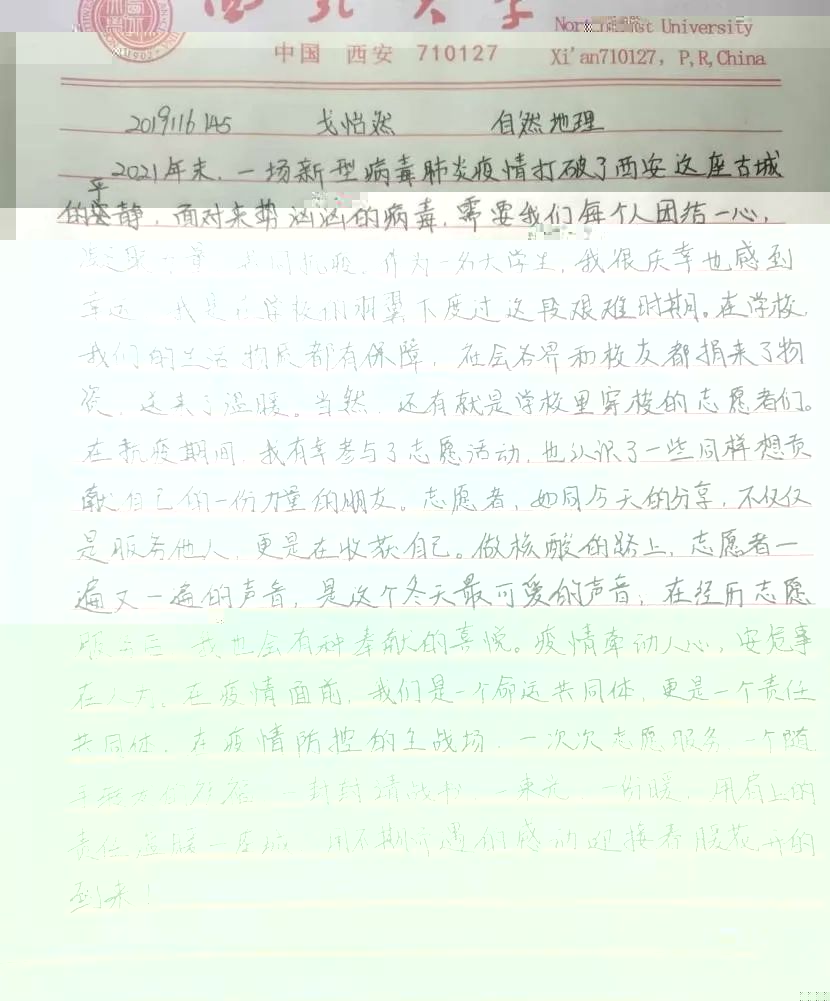 西北大学
Northwest University
中国 西安 710127
Xi'an710127, P,R,China
1902
2019116145 戈怡然 自然地理
2021年末,一场新型病毒肺炎疫情打破了西安这座古城
的平静,面对来势汹汹的病毒,需要我们每个人团结一心,
凝聚力量,共同抗疫。作为一名大学生,我很庆幸也感到
幸运,我是在学校的羽翼下度过这段艰难时期。在学校,
我们的生活物质都有保障,社会各界和校友都捐来了物
资,送来了温暖。当然,还有就是学校里穿梭的志愿者们。
在抗疫期间,我有幸参与了志愿活动,也认识了一些同样想贡
献自己的一份力量的朋友。志愿者,如同今天的分享,不仅仅
是服务他人,更是在收获自己。做核酸的路上,志愿者一
遍又一遍的声音,是这个冬天最可爱的声音;在经历志愿
服务后,我也会有种奉献的喜悦。疫情牵动人心,安危事
在人为。在疫情面前,我们是一个命运共同体,更是一个责任
共同体,在疫情防控的主战场,一次次志愿服务,一个随
一封封请战书,一束光,一份暖,用肩上的
责任温暖一座城,用不期而遇的感动迎接春暖花开的
到来!